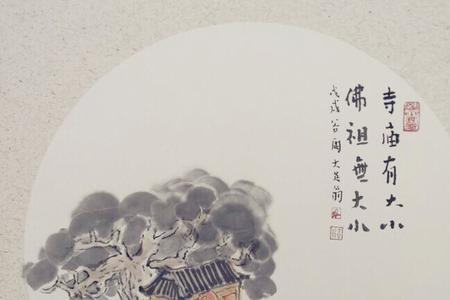 寺庙有大小
佛祖無大小
戊戌谷雨大芒翁